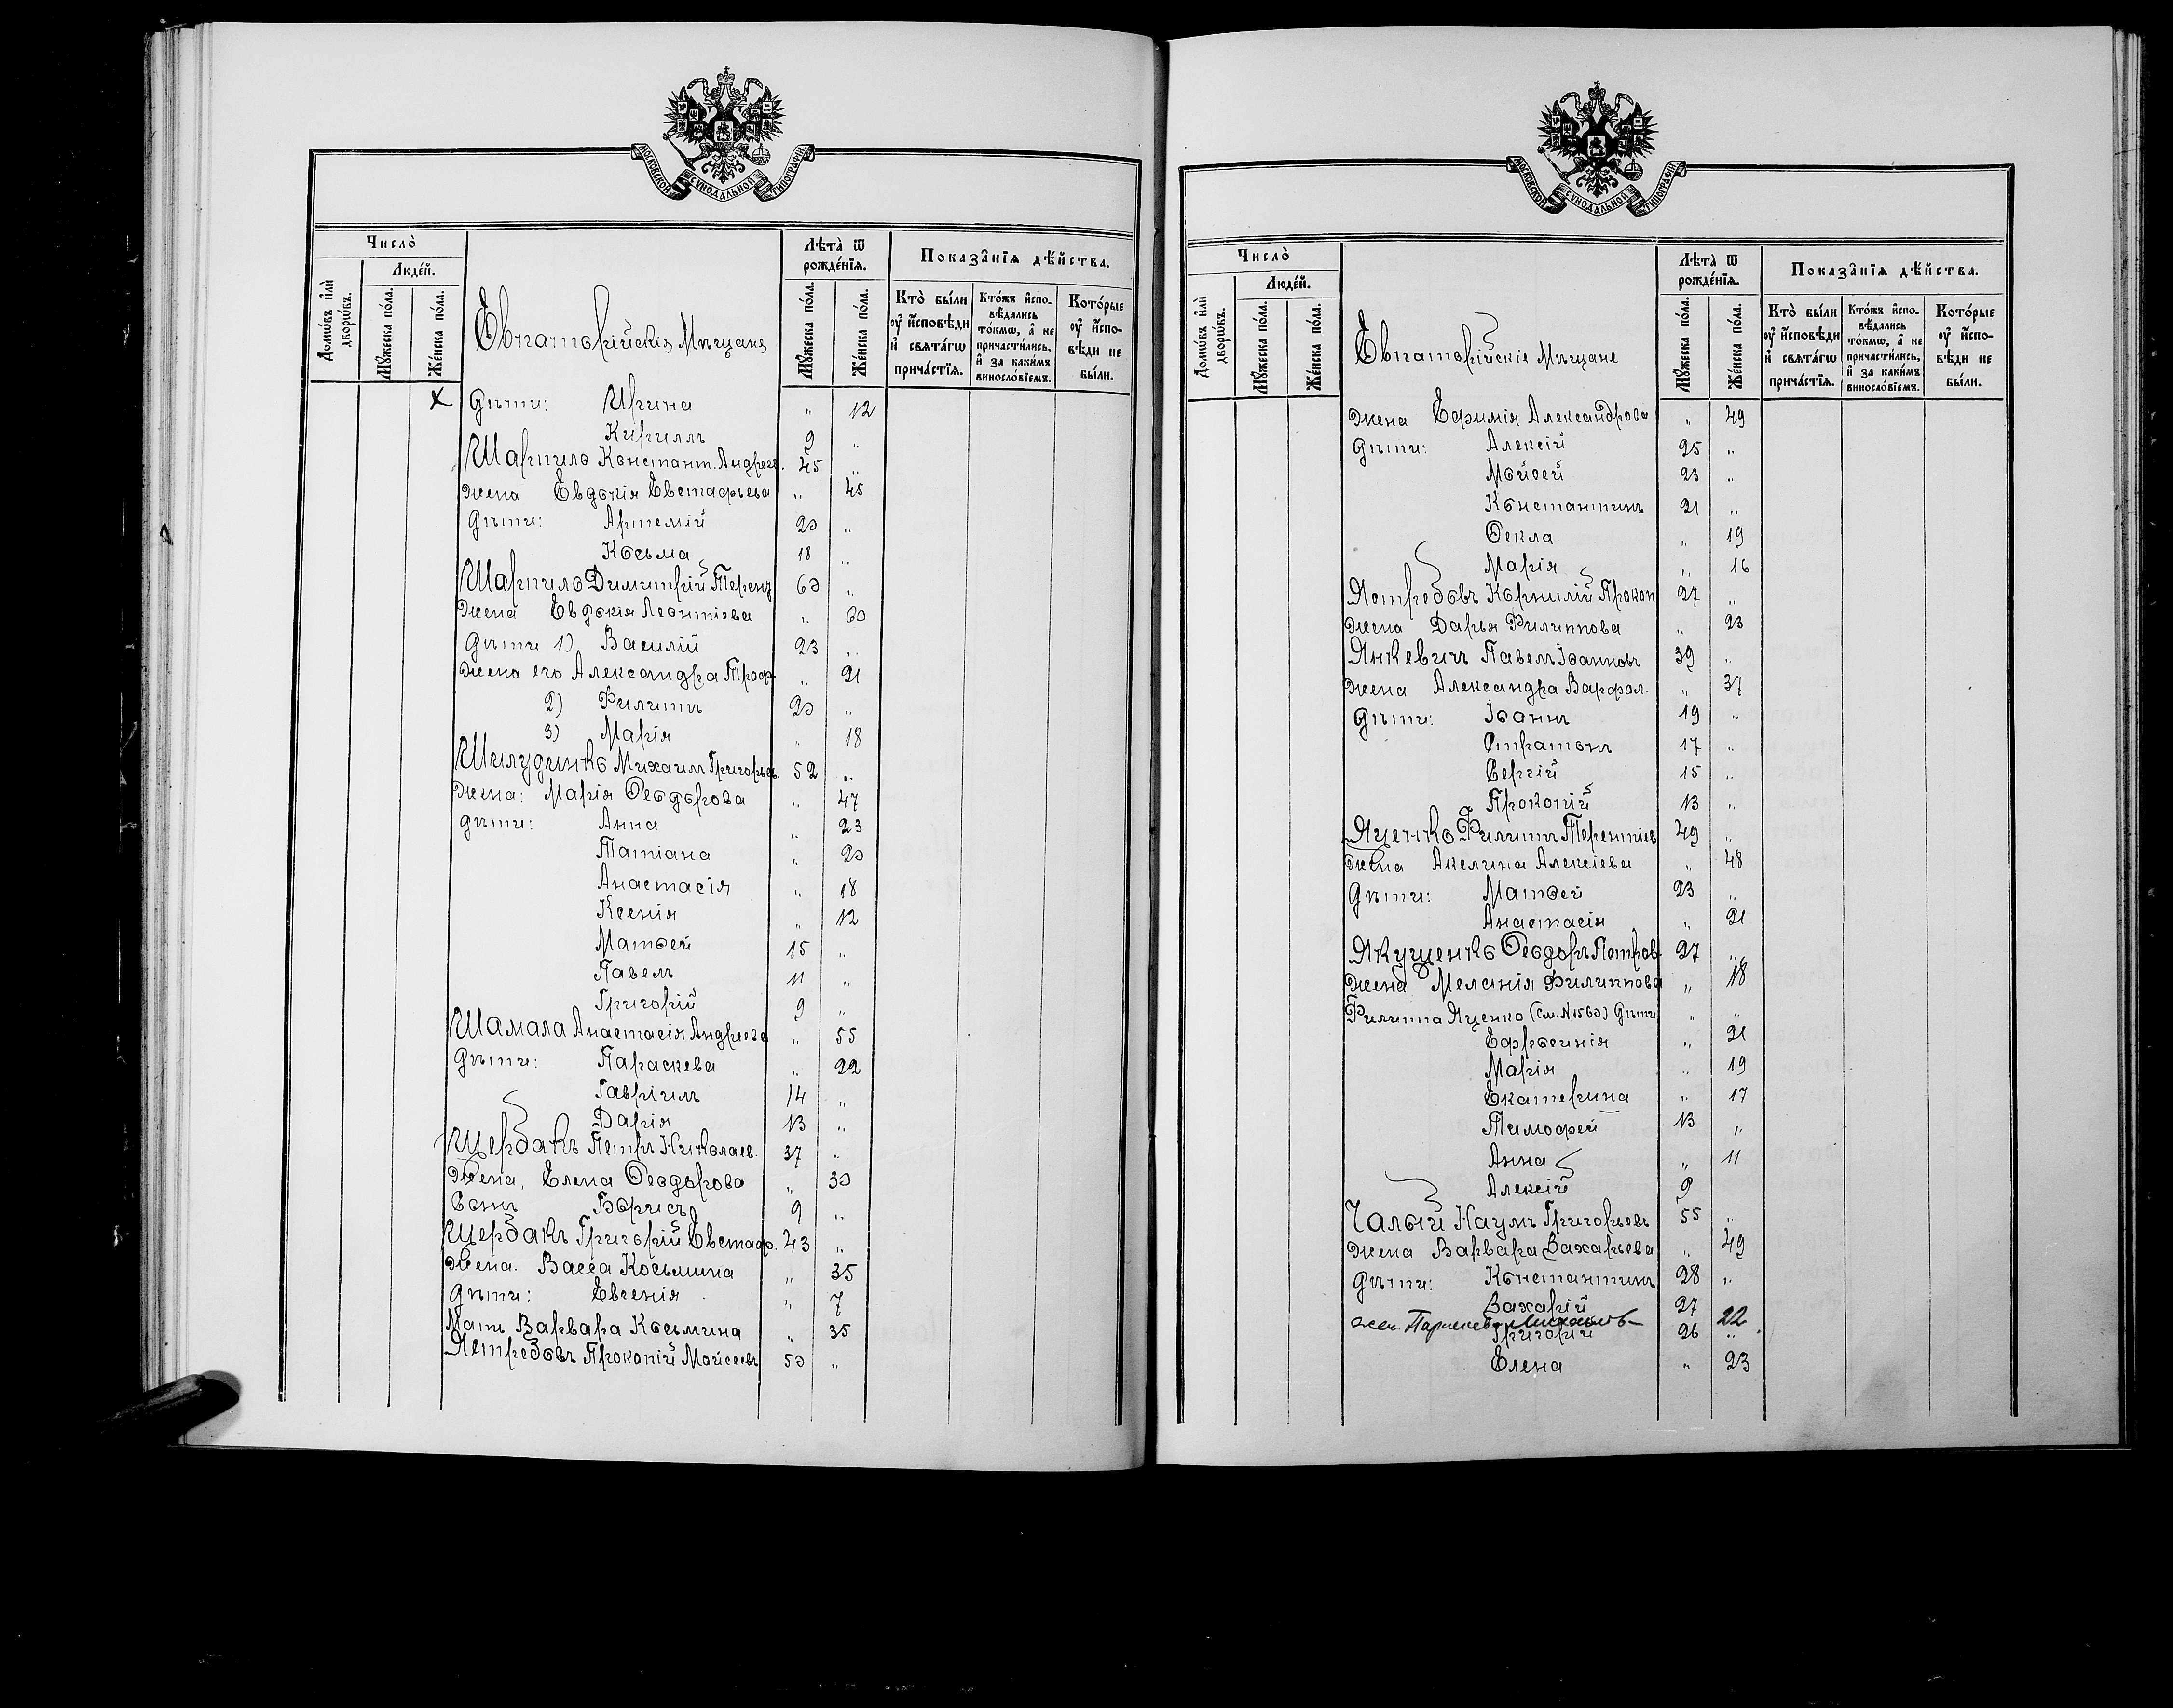 МОСКОВСКОЙ СѴНОДАЛЬНОЙ ТИПОГРАФІИ
Число̀
Людéй.
Домѡ́въ и҆лѝ дворѡ́въ.
Мꙋ́жеска по́ла.
Же́нска по́ла.
Евпаторійскія Мѣщане
Лѣта̀ ѿ рожде́нїѧ.
Мꙋ́жеска по́ла.
Же́нска по́ла.
Показа̑нїѧ дѣ́йства.
Кто̀ бы́ли ᲂу҆ и҆сповѣди и҆ свѧта́гѡ прича́стїѧ.
Кто́жъ и҆спо- вѣ́дались то́кмѡ, а҆ не причасти́лись, и҆ за каки́мъ винослóвїемъ.
Кото́рые ᲂу҆ и҆спо- вѣди не бы́ли.
х Дѣти: Ирина " 12
Кириллъ 9 "
Шарпило Констант. Андреев. 45 "
Жена Евдокія Евстафьева " 45
Дѣти: Артемій 20 "
Косьма 18 "
Шарпило Димитрій Терент 60 "
Жена Евдокія Леонтіева " 60
Дѣти 1) Василій 23 "
Жена его Александра Троф. " 21
2) Филиппъ 20 "
3) Марія " 18
Шилудинко Михаилъ Григорьев. 52 "
Жена: Марія Ѳеодорова " 47
Дѣти: Анна " 23
Татіана " 20
Анастасія " 18
Ксенія " 12
Матѳей 15 "
Павелъ 11 "
Григорій 9 "
Шамала Анастасія Андреева " 55
Дѣти: Параскева " 22
Гавріилъ 14 "
Дарія 13 "
Щербакъ Петръ Николаев. 37 "
Жена, Елена Ѳеодорова " 30
Сынъ Борисъ 9 "
Щербакъ Григорій Евстаф. 43 "
Жена. Васса Косьмина " 35
Дѣти: Евгенія " 7
Мать Варвара Косьмина " 35
Ястребовъ Прокопій Мойсеевъ 50 "
МОСКОВСКОЙ СѴНОДАЛЬНОЙ ТИПОГРАФІИ
Число̀
Людéй.
Домѡ́въ и҆лѝ дворѡ́въ.
Мꙋ́жеска по́ла.
Же́нска по́ла.
Евпаторійскія Мѣщане
Лѣта̀ ѿ рожде́нїѧ.
Мꙋ́жеска по́ла.
Же́нска по́ла.
Показа̑нїѧ дѣ́йства.
Кто̀ бы́ли ᲂу҆ и҆сповѣди и҆ свѧта́гѡ прича́стїѧ.
Кто́жъ и҆спо- вѣ́дались то́кмѡ, а҆ не причасти́лись, и҆ за каки́мъ винослóвїемъ.
Кото́рые ᲂу҆ и҆спо- вѣди не бы́ли.
Жена Ефимія Александрова " 49
Дѣти: Алексій 25 "
Мойсей 23 "
Константинъ 21 "
Ѳекла " 19
Марія " 16
Ястребовъ Корнилій Прокоп 27 "
Жена Дарья Филиппова " 23
Янкевичъ Павелъ Іоанновъ 39 "
Жена Александра Варфол. " 37
Дѣти: Іоаннъ 19 "
Стратонъ 17 "
Сергій 15 "
Прокопій 13 "
Яценко Филиппъ Терентіев 49 "
Жена Акелина Алексіева " 48
Дѣти: Матѳей 23 "
Анастасія " 21
Якущенко Ѳеодоръ Петров. 27 "
Жена Меланія Филиппова " 18
Филиппа Яценко (См. N 1560) Дѣти " "
Ефросинія " 21
Марія " 19
Екатерина " 17
Тимофей 13 "
Анна " 11
Алексій 9
Чалый Наумъ Григорьевъ 55 "
Жена Варвара Захарьева " 49
Дѣти: Константинъ 28 "
Захарій 27
22
Григорій 26 "
Елена " 23